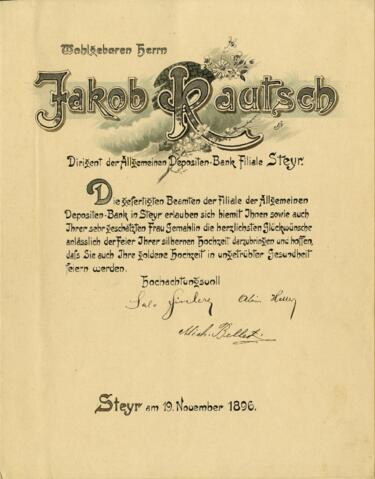 Wohlgebaren Herrn
Jakob Rautsch
Dirigent der Allgemeinen Depositen-Bank Filiale Steyr.
Die gefertigten Beamten der Filiale der Allgemeinen
Depositen-Bank in Steyr erlauben sich hiemit Ihnen sowie auch
Ihrer sehr geschätzten Frau Gemahlin die herzlichsten Glückwünsche
anlässlich der Feier Ihrer silbernen Hochzeit darzubringen und hoffen,
daß Sie auch Ihre goldene Hochzeit in ungetrübter Gesundheit
feiern werden.
Hochachtungsvoll
Mich.
Steyr am 19. November 1896.